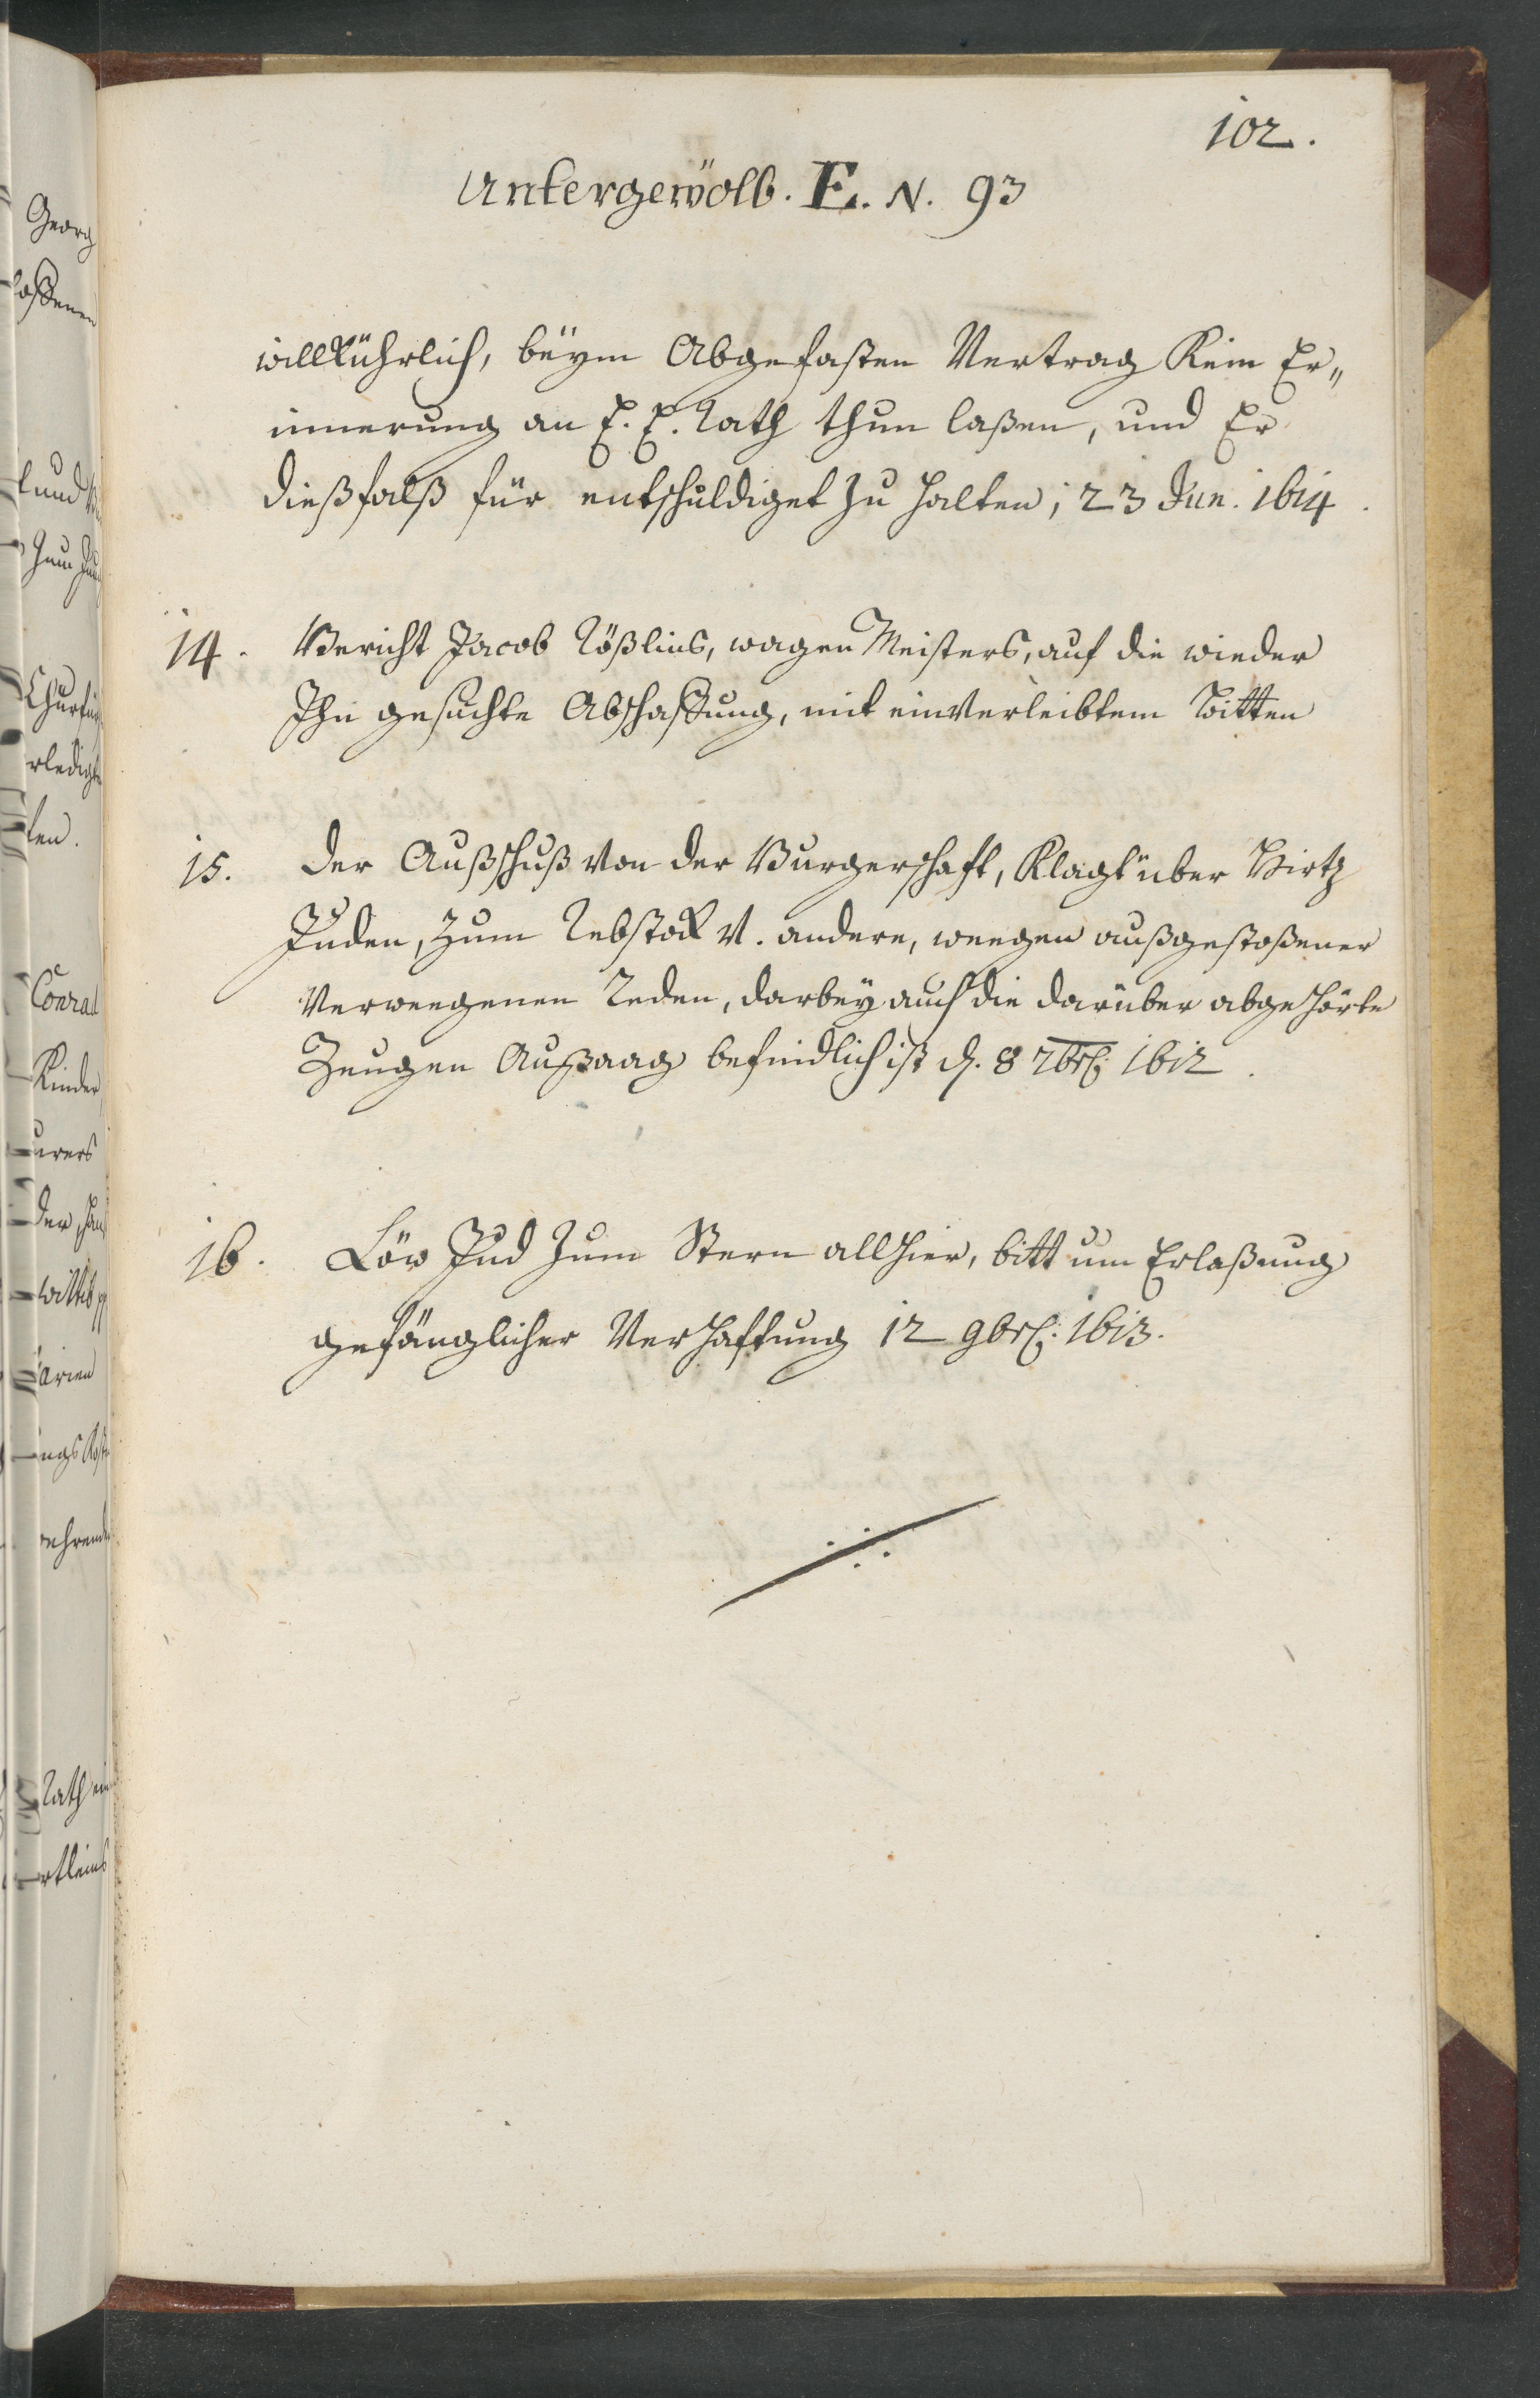 102.
Untergewölb. E. N. 93
willkührlich, beÿm Abgefasten Vertrag Kein Er„
innerung an E. E. Rath thun laßen, und Er
dießfalß für entschuldiget zu halten, 23 Jun. 1614.
14. Bericht Jacob Rößlins, wagen Meisters, auf die wieder
Ihn gesuchte Abschaffung, mit einverleibtem Bitten
15. Der Außschuß von der Burgerschafft, Klagt über Hirtz
Juden, zum Rebstock u. andere, weegen außgestoßener
Verweegenen Reden, darbeÿ auch die darüber abgehörte
Zeugen Außaag befindlich ist d. 8 7br. 1612.
16. Löw Jud zum Stern allhier, bitt um Erlaßung
gefänglicher Verhafftung 12 9br. 1613.
Georg
und
Churfü
rledigt
ten.
Conrad
Kinder
urers
der
wittib
arien
ngs
ehrend
Rath
rtleins